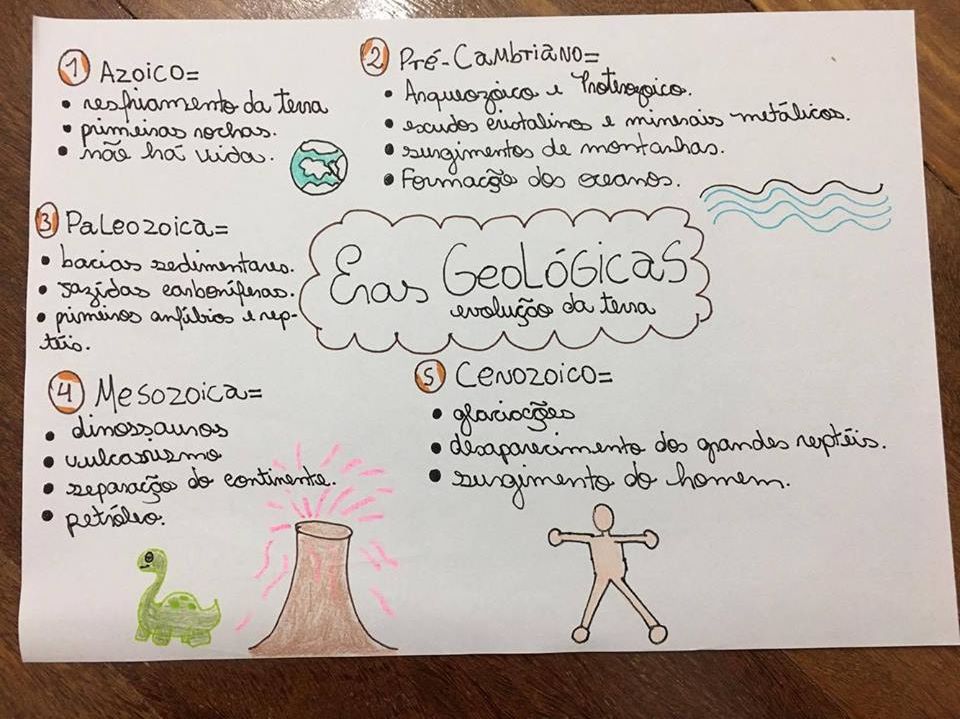 1 Azoico=
• resfriamento da terra
• primeiras rochas.
• não há vida.
2 Pré-Cambriano=
• Arqueozóico e Proterozoico.
• escudos cristalinos e minerais metálicos.
• surgimentos de montanhas.
• Formacção dos oceanos.
3 Paleozoica=
• bacias sedimentares.
• jazidas carboníferas.
• primeiros anfíbios e rep-
téis.
Eras Geológicas
evolução da terra
4 Mesozoica=
• dinossauros
• vulcanismo
• separacção do continente.
• petróleo.
5 Cenozoico=
• glaciacções
• desaparecimento dos grandes reptéis.
• surgimento do homem.